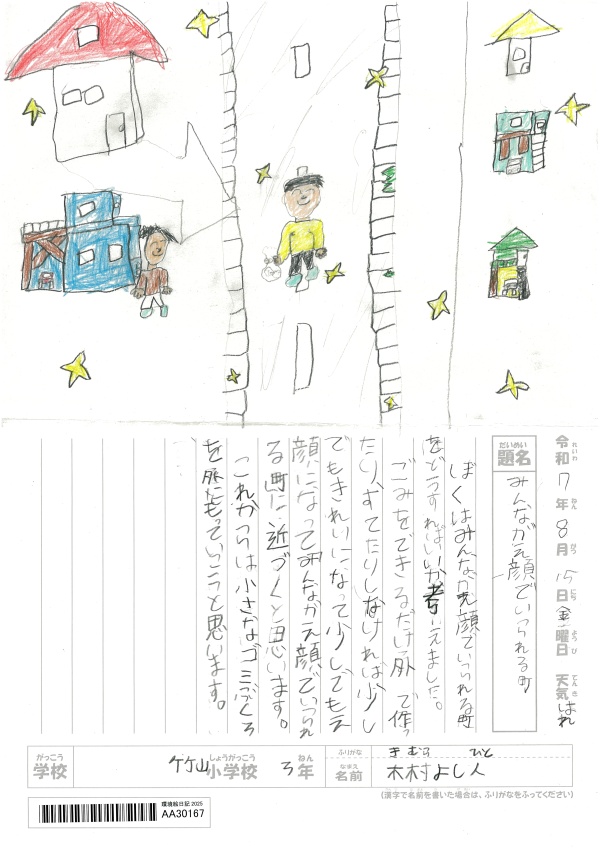 令和7年8月15日金曜日 天気 はれ
れいわ ねん がつ にち ようび てんき
だいめい
題名
みんながえ顔でいられる町
ぼくはみんながえ顔でいられる町
をどうすればいいか考えました。
ごみをできるだけ外で作っ
たり、すてたりしなければ少し
でもきれいになって少しでもえ
顔になってみんながえ顔でいられ
る町に近づくと思います。
これからは小さなゴミぶくろ
を外にもっていこうと思います。
がっこう
学校
竹山小学校 3年
しょうがっこう ねん
ふりがな きむら ひと
なまえ
名前 木村よし人
(漢字で名前を書いた場合は、ふりがなをふってください)
環境絵日記 2025
AA30167